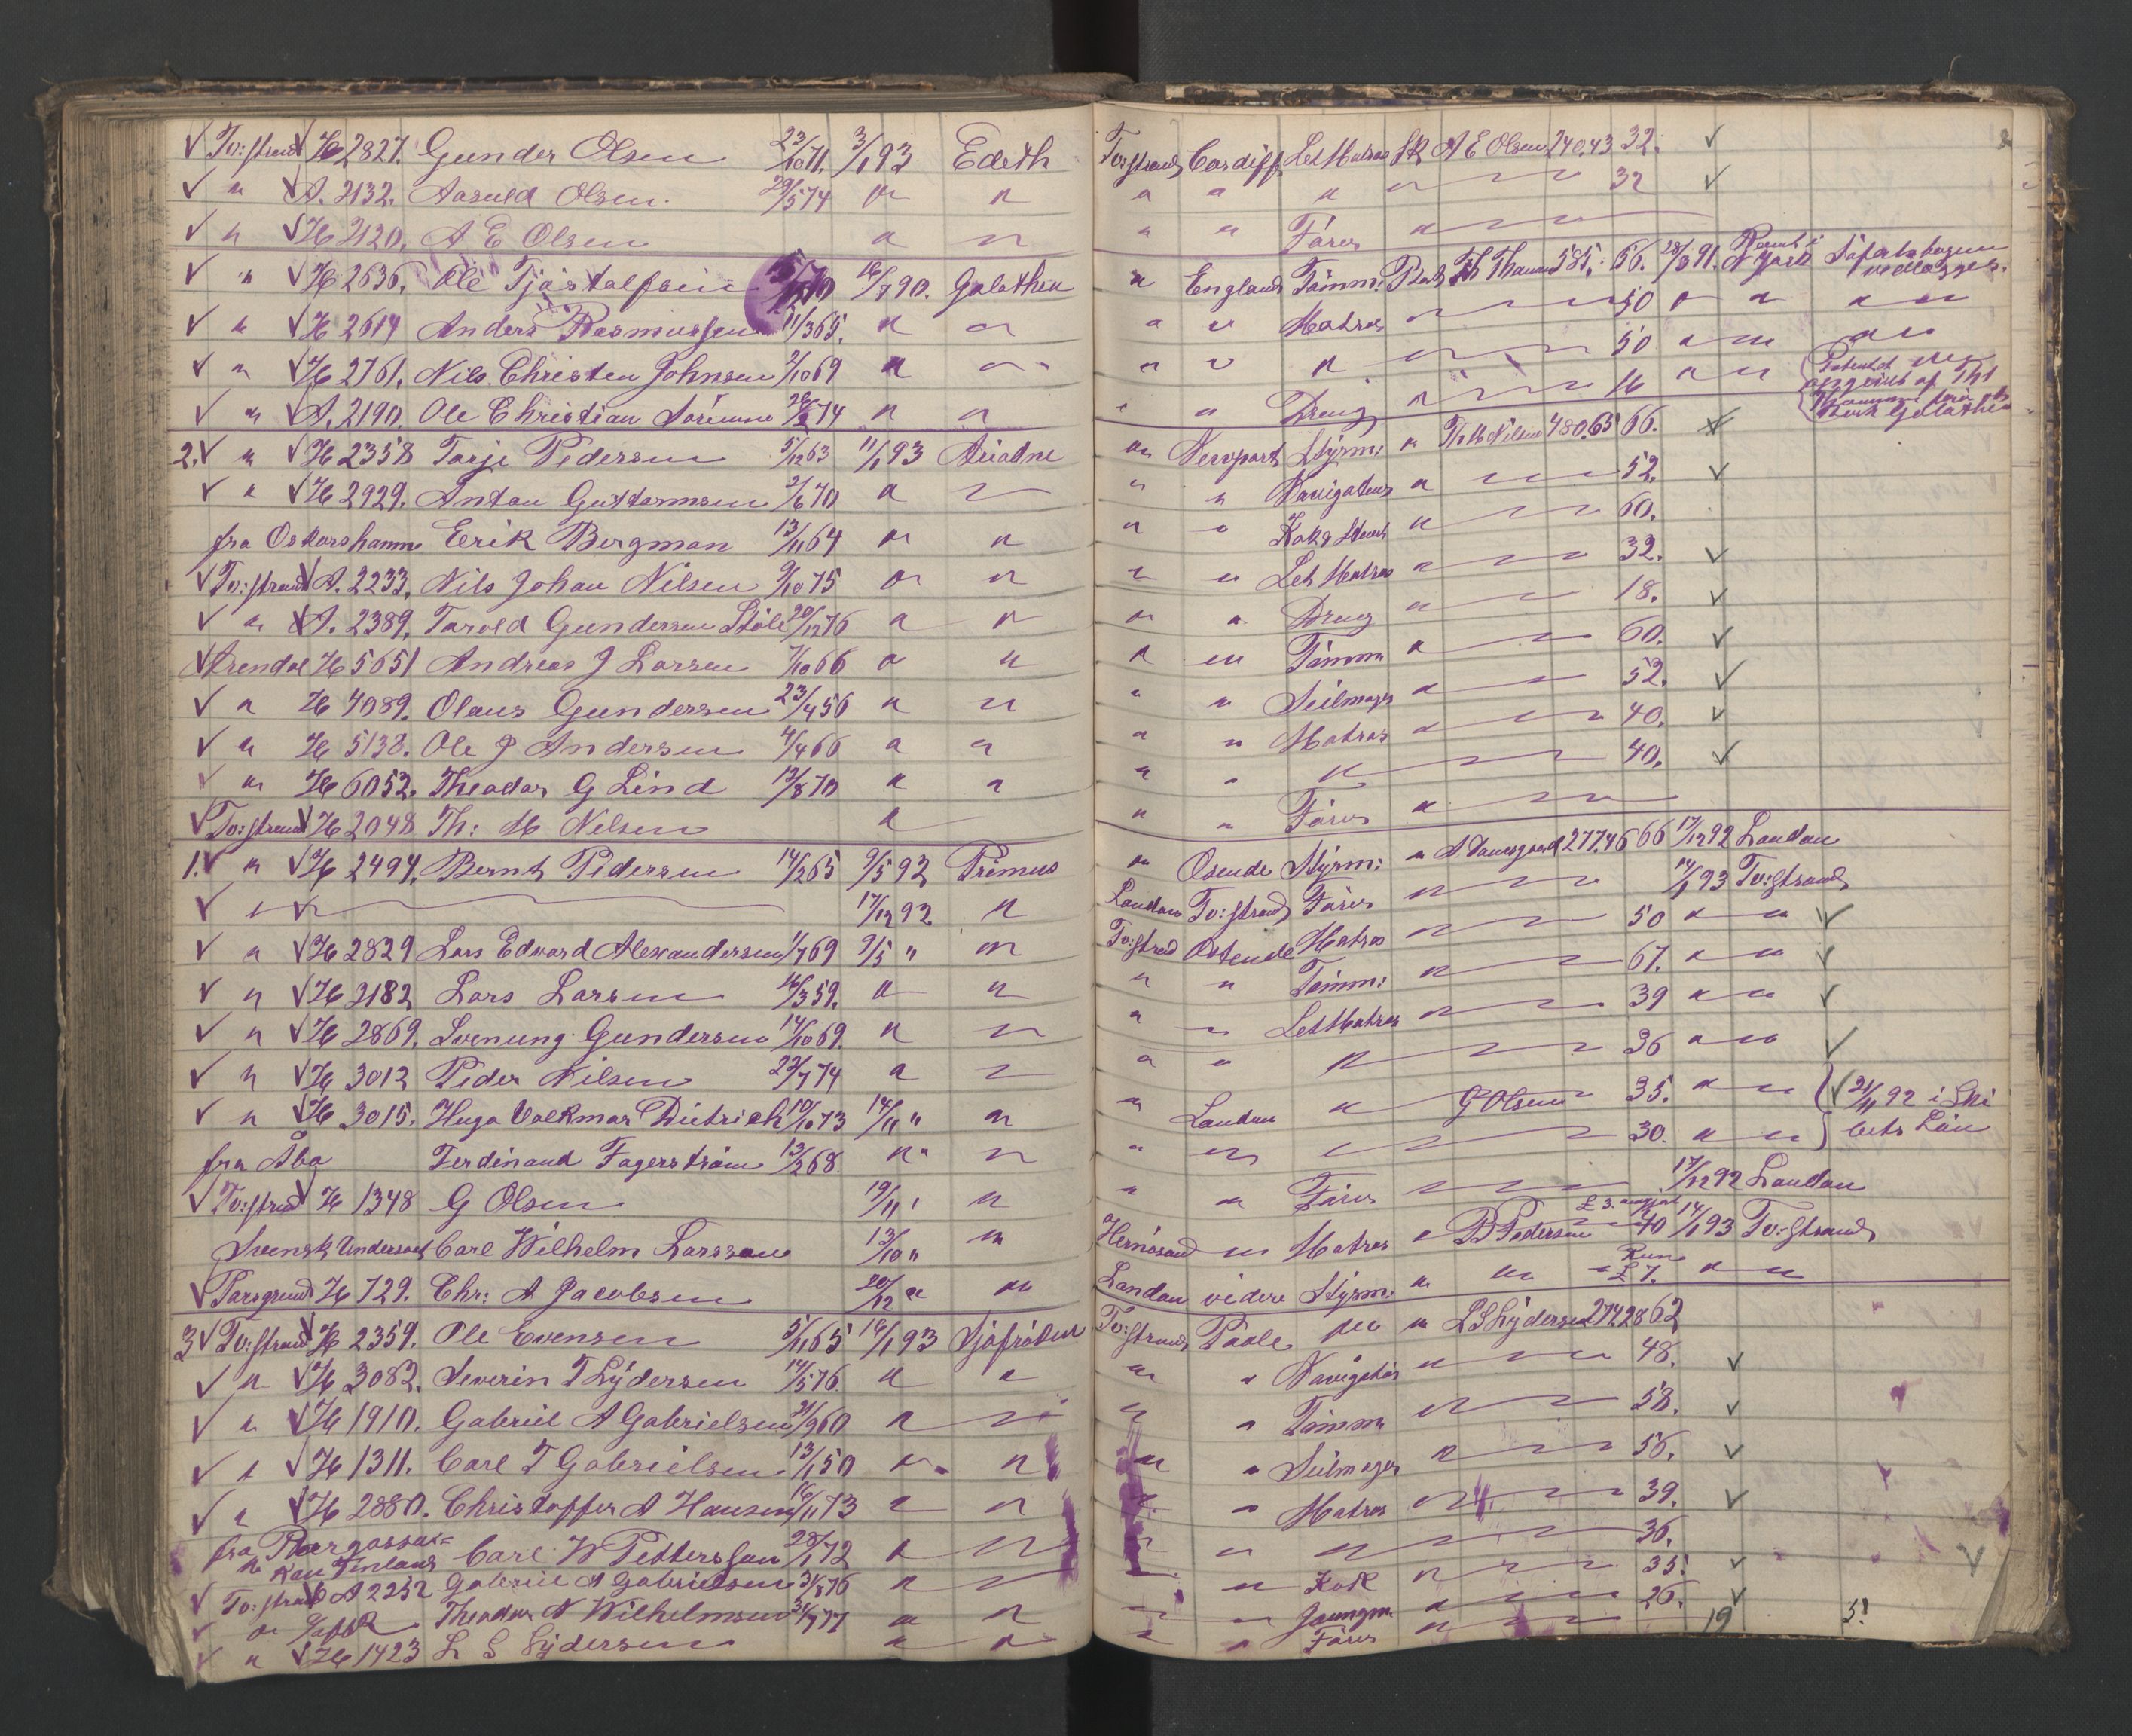 To:strand H 2827. Gunder Olsen 23/10 71. 3/1 93 Edeth
" A. 2132. Aasuld Olsen. 29/5 74 " "
" H 2120. A E Olsen " "
" H 2636. Ole Tjøstolfsen 16/7 90. Galathea
" H 2614 Anders Rasmussen 11/3 65. " "
" H 2761. Nils Christen Johnsen 2/10 69 " "
" A. 2190. Ole Christian Sørensen 74 " "
2. " H 2358 Tarje Pedersen 5/12 63 11/1 93 Ariadne
" H 2929. Anton Guttormsen 2/6 70 " "
fra Oskarshamn Erik Bergman 13/11 64 " "
To:strand A. 2233. Nils Johan Nilsen 9/10 75 " "
" A. 2389. Tarald Gundersen Støle 20/12 76 " "
Arendal H 5651 Andreas J Larsen 7/10 66 " "
" H 4089. Olaus Gundersen 23/4 56 " "
" H 5138. Ole J Andersen 4/4 66 " "
" H 6052. Theodor G Lind 12/8 70 " "
To:strand H 2048 Th: M Nilsen "
1. " H 2494. Bernt Pedersen 14/2 65 9/5 92 Primus
" " 17/12 92 "
" H 2829 Lars Edvard Alexandersen 1/7 69 9/5 " "
" H 2182 Lars Larsen 16/3 59. " "
" H 2869. Svenung Gundersen 14/10 69. " "
" H 3012 Peder Nilsen 22/7 74 " "
" H 3015. Hugo Volkmar Dietrich 10/10 73 14/11 " "
fra Åbo Ferdinand Fagerström 13/2 68. " "
To:strand H 1348 G Olsen 19/11 " "
Svensk Undersaat Carl Wilhelm Larsson 13/10 " "
Porsgrund H 729. Chr: A Jacobsen 20/12 " "
3 To:strand H 2359. Ole Evensen 5/11 65 16/1 93 Sjøfröken
" H 3082. Severin T Lydersen 14/5 76. " "
" H 1910. Gabriel A Gabrielsen 21/9 60 " "
" H 1311. Carl T Gabrielsen 13/1 50 " "
" H 2880. Christoffer A Hansen 16/11 73 " "
fra
Finland Carl W Pettersson 28/1 72 " "
To:strand A 2252 Gabriel A Gabrielsen 31/8 76 " "
" Theodor N Wilhelmsen 77 " "
" H 1423 L S Lydersen " "
To:strand Cardiff Let Matros Sk A E Olsen 240.43 32.
" " " " 32
" " Fører "
" England Tømm: Th Thommesen 585. 56. 28/8 91. Rømt i N York Søfartsbogen vedlægges.
" " Matros " 50 " " " "
" " " " 50 " " " "
" " Dreng " 16 " "
" Newport Styrm: " Th M Nilsen 480.65 66.
" " Navigatør " 52.
" " Kok & Stuert " 60.
" " Let Matros " 32.
" " Dreng " 18.
" " Tømm " 60.
" " Seilmager " 52.
" " Matros " 40.
" " " 40.
" " Fører "
" Osende Styrm: " A Daasgaard 277.46 66 17/12 92 London
London To:strand Fører " 14/1 93 To:strand
To:strand Ostende Matros " 50 " "
" " Tømm: " 67. " "
" " Let Matros " 39 " "
" " " 36 " "
" London " G Olsen 35. " " 21/11 92 i
" " " 30. " "
" " Fører " 17/12 92 London
£ 3.
Hernösand " Matros " B Pedersen 40 14/1 93 To:strand
London videre Styrm: " " Run £ 7. " "
To:strand Poole " L S Lydersen 274.28 62
" " Navigatør " 48.
" " Tømm " 58.
" " Seilmager " 56.
" " Matros " 39.
" " " 36.
" Kok " 35.
" " Jungm " 26.
" " Fører " 19 5!